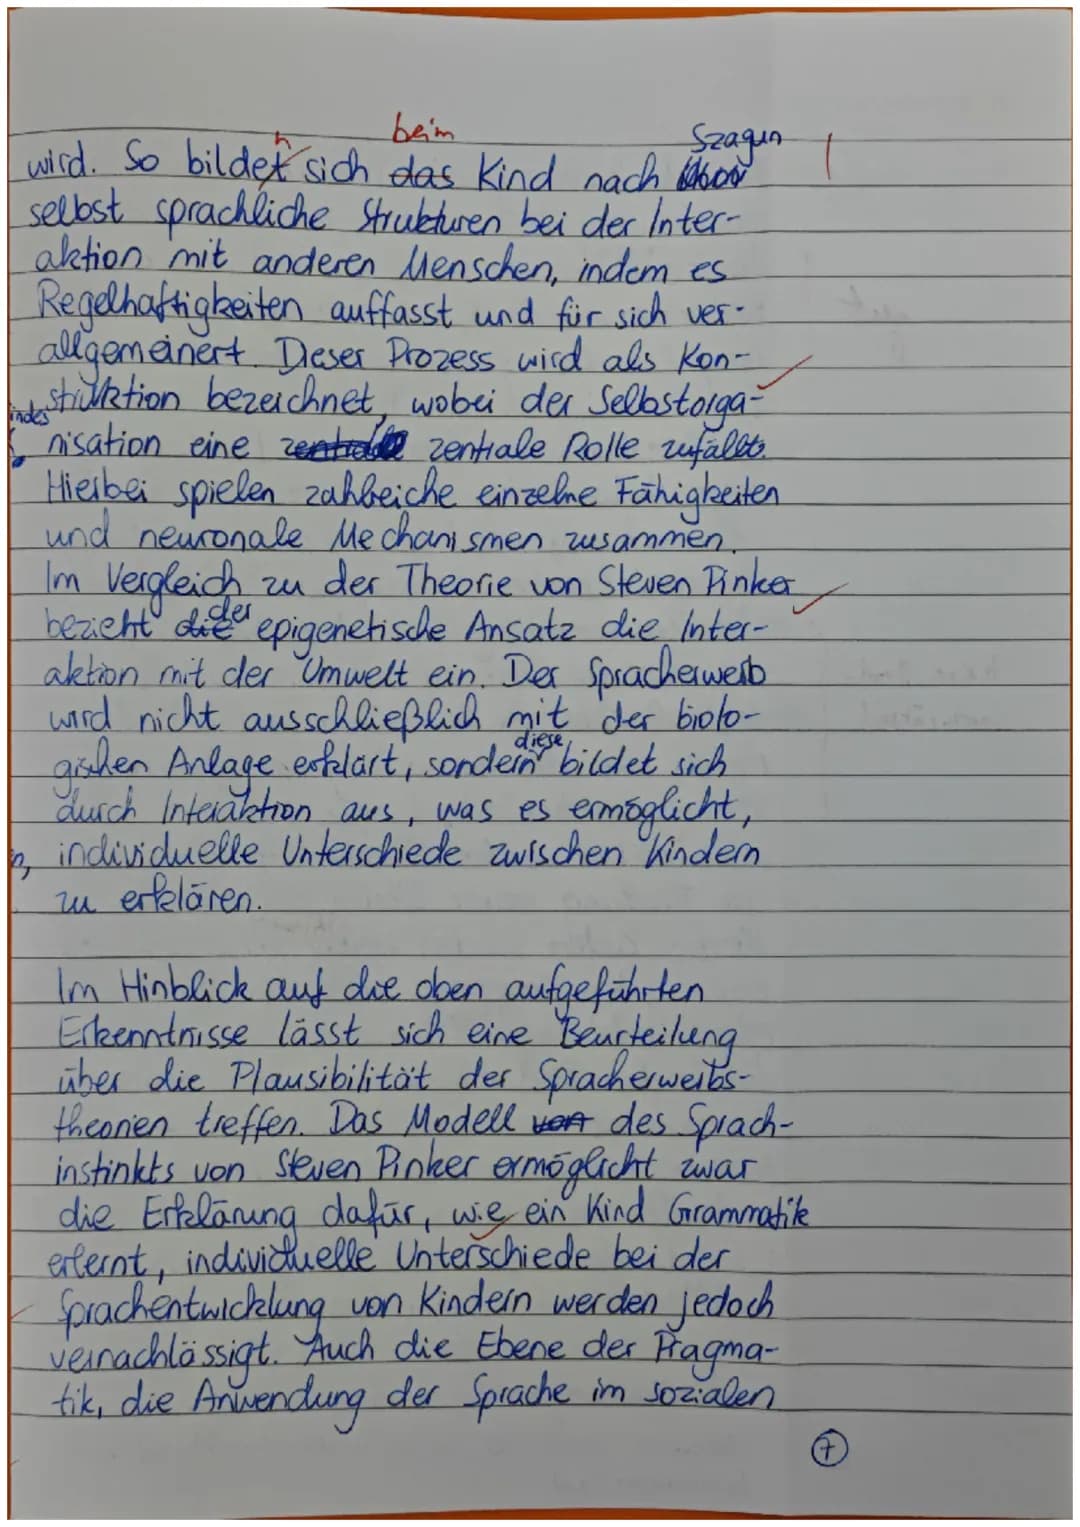 beim
n
Szagun
wird. So bildet sich das Kind nach
selbst sprachliche Strukturen bei der Inter-
aktion mit anderen Menschen, indem es
Regelhaftigkeiten auffasst und für sich ver-
allgemeinert. Dieser Prozess wird als Kon-
struktion bezeichnet, wobei der Selbstorga-
indes
nisation eine zentrale zentrale Rolle zufällt.
Hierbei spielen zahlreiche einzelne Fähigkeiten
und neuronale Mechanismen zusammen.
Im Vergleich zu der Theorie von Steven Pinker
bezieht die der epigenetische Ansatz die Inter-
aktion mit der Umwelt ein. Der Spracherwerb
wird nicht ausschließlich mit der biolo-
gischen Anlage erklärt, sondern diese bildet sich
durch Interaktion aus, was es ermöglicht,
individuelle Unterschiede zwischen Kindern
zu erklären.
Im Hinblick auf die oben aufgeführten
Erkenntnisse lässt sich eine Beurteilung
über die Plausibilität der Spracherwerbs-
theorien treffen. Das Modell von des Sprach-
instinkts von Steven Pinker ermöglicht zwar
die Erklärung dafür, wie ein Kind Grammatik
erlernt, individuelle Unterschiede bei der
Sprachentwicklung von Kindern werden jedoch
vernachlässigt. Auch die Ebene der Pragma-
tik, die Anwendung der Sprache im sozialen
7